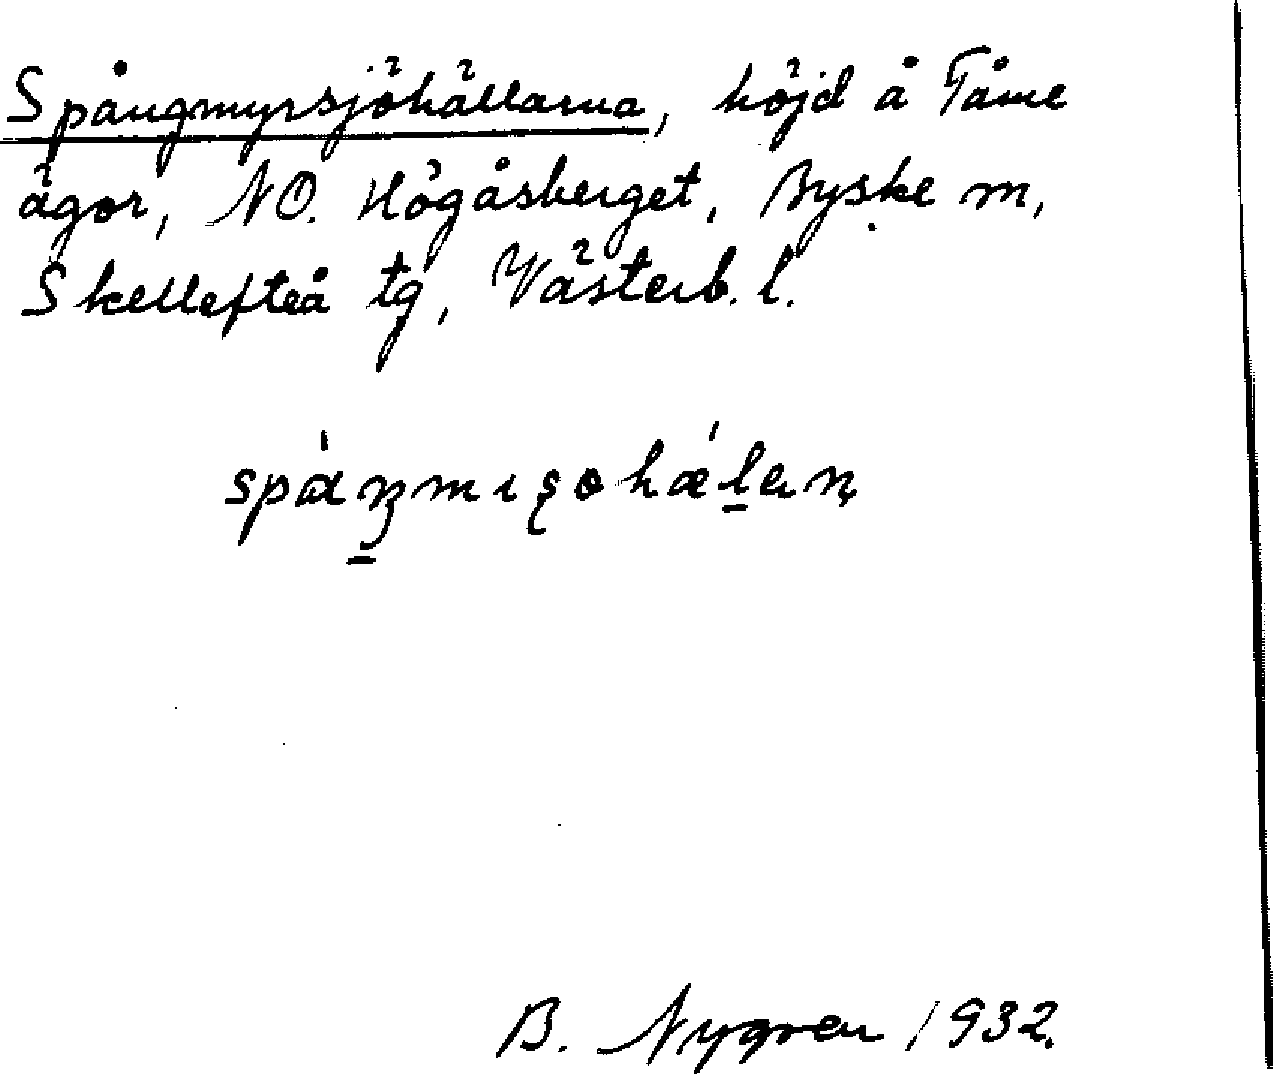 Spångmyrsjöhällarna, höjd å Tåme
ägor, NO. Högåsberget, Byske m,
Skellefteå tg, Västerb. l.
B. Nygren 1932.